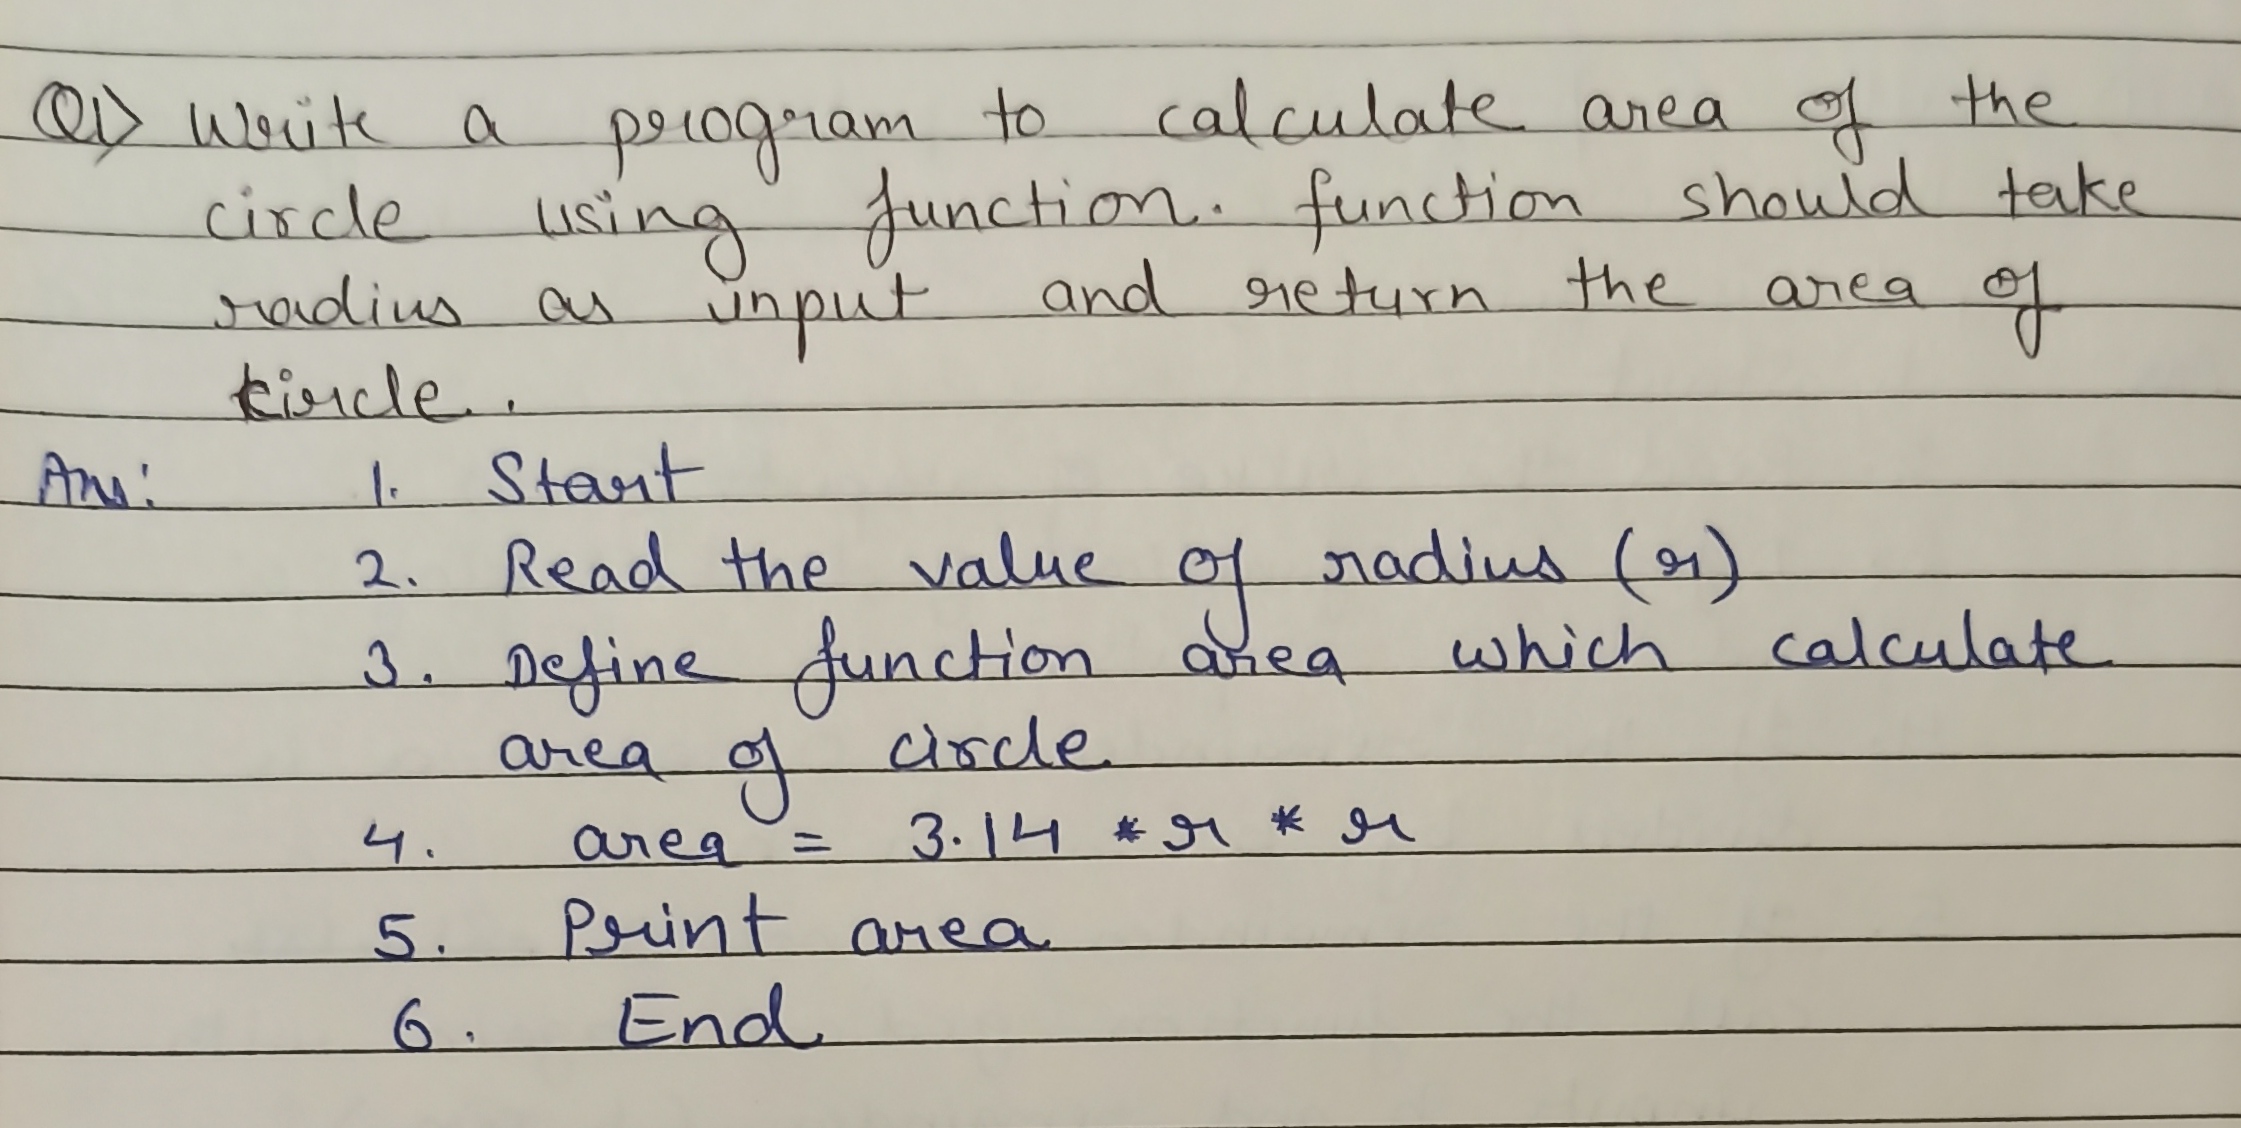 Q1> Write a program to calculate area of the
circle using function. function should take
radius as input and return the area of
circle.
Ans: 1. Start
2. Read the value of radius (r)
3. Define function area which calculate
area of circle
4. area = 3.14 * r * r
5. Print area
6. End